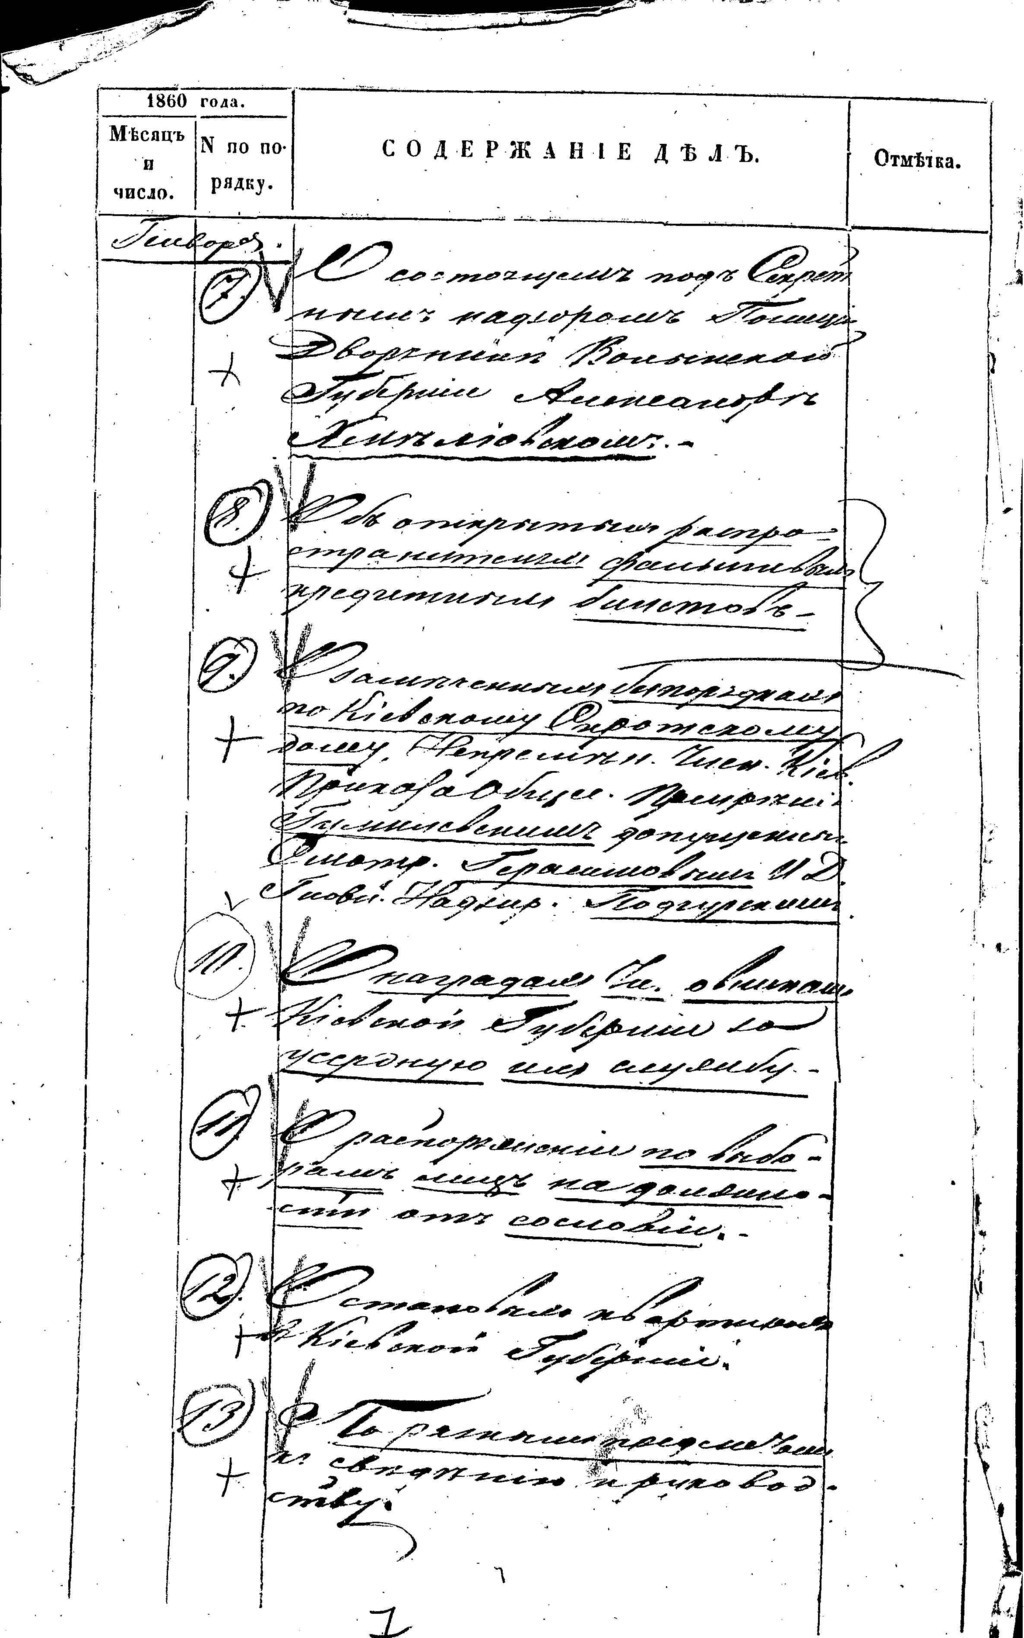 1860 года.
Мѣсяцъ и число.
N по порядку.
СОДЕРЖАНІЕ ДѢЛЪ.
Отмѣтка.
Генваря.
7. О состоящемъ подъ Секрет
нымъ надзоромъ Полиціи
Дворянинѣ Волынской
Губерніи Александрѣ
8. Объ открытыхъ распро-
странителяхъ фальшивыхъ
кредитныхъ билетовъ-
9. О замѣченныхъ безпорядкахъ
по Кіевскому Сиротскому
дому, Непремѣн. Член. Кіев.
Приказа Общес. Призрѣнія
допущенныхъ
Смотр. Герасимовымъ И Д
Надзир. Подгурскимъ
10. О наградахъ Чиновникамъ
Кіевской Губерніи за
усердную ихъ службу.-
11. О распоряженіи по выбо-
рамъ лицъ на должно-
сти отъ сословій.-
12. О становыхъ квартирахъ
въ Кіевской Губерніи.
13 По разнымъ предметамъ
къ свѣдѣнію и руковод-
ству.
1